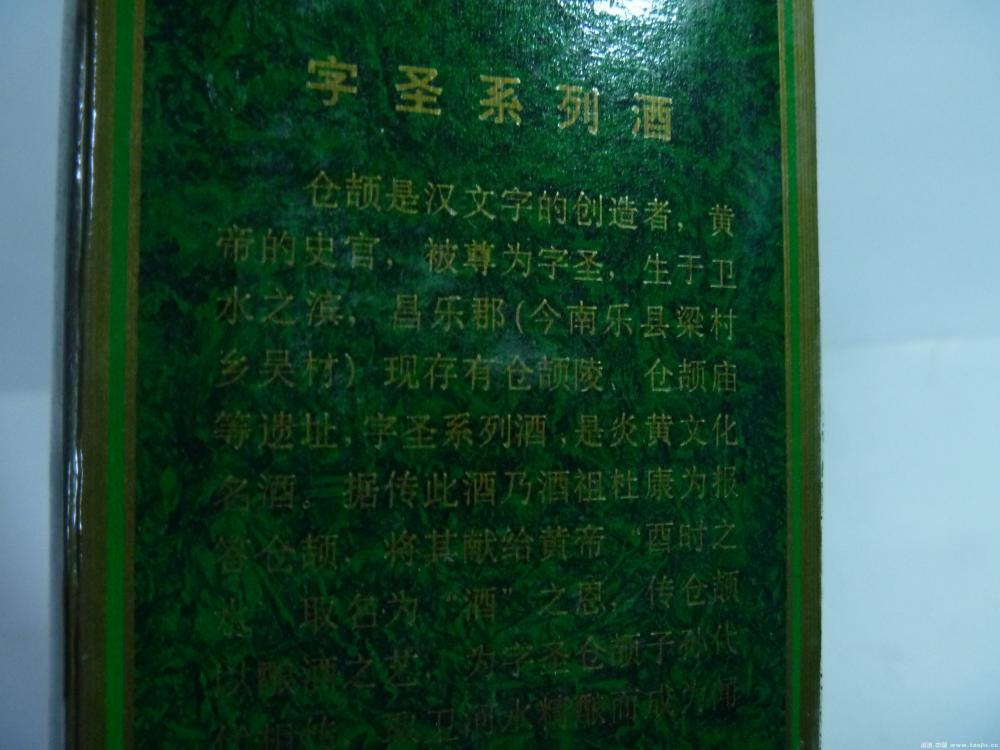 字圣系列酒
仓颉是汉文字的创造者，黄
帝的史官，被尊为字圣，生于卫
水之滨，昌乐郡(今南乐县梁村
乡吴村)现存有仓颉陵、仓颉庙
等遗址，字圣系列酒，是炎黄文化
名酒。据传此酒乃酒祖杜康为报
答仓颉，将其献给黄帝“酉时之
水”取名为“酒”之恩，传仓颉
以酿酒之艺，为字圣仓颉子孙代
卫河水精酿而成为闻